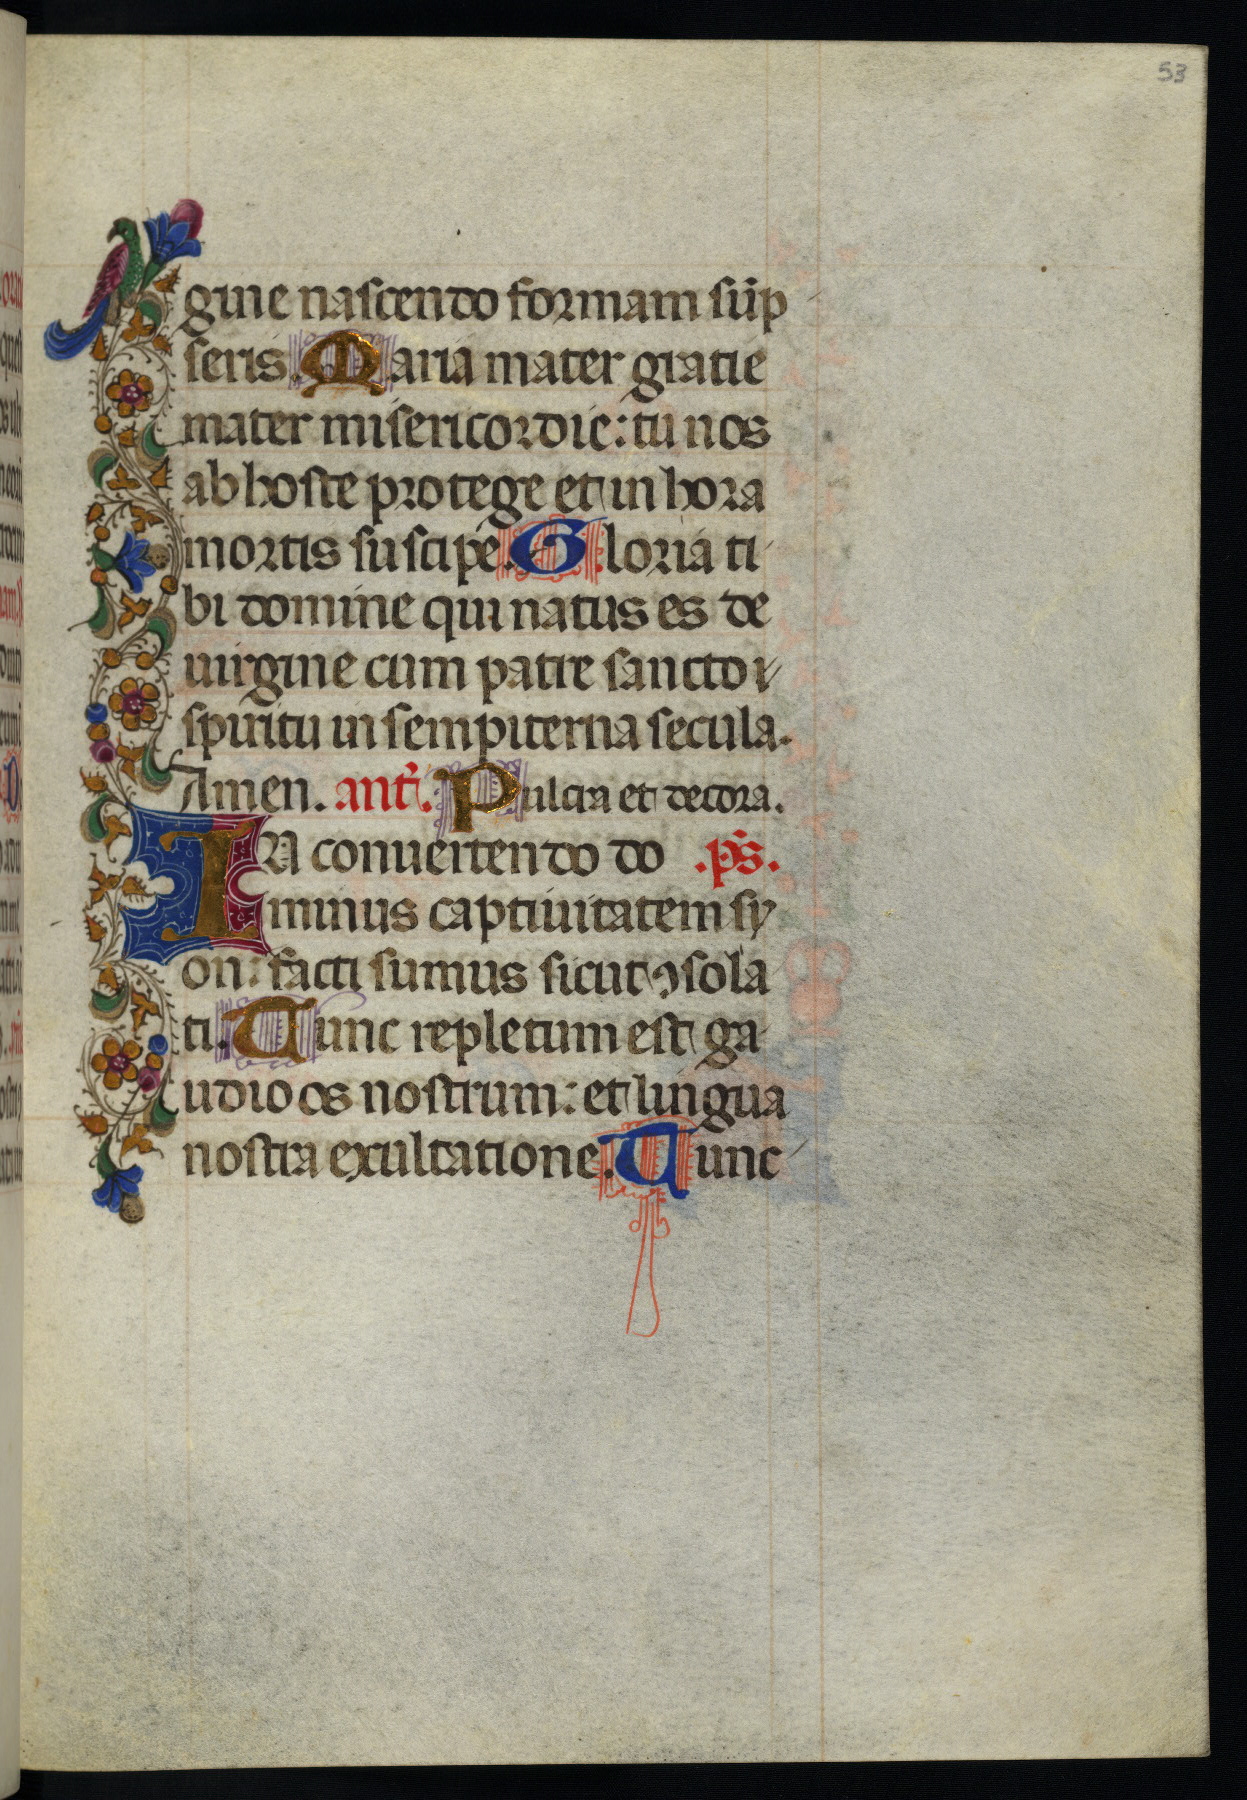 53
gine nascendo formam sūp
seris. Maria mater gratie
mater misericordie: tu nos
ab hoste protege et in hora
mortis suscipe. Gloria ti
bi domine qui natus es de
uirgine cum patre sancto ⁊
spiritu in sempiterna secula.
Amen. ant̄. Pulcra et decora.
IN conuertendo do .ps̄.
minus captiuitatem sy
on: facti sumus sicut ꝯsola
ti. Tunc repletum est ga
udio os nostrum: et lingua
nostra exultatione. Tunc